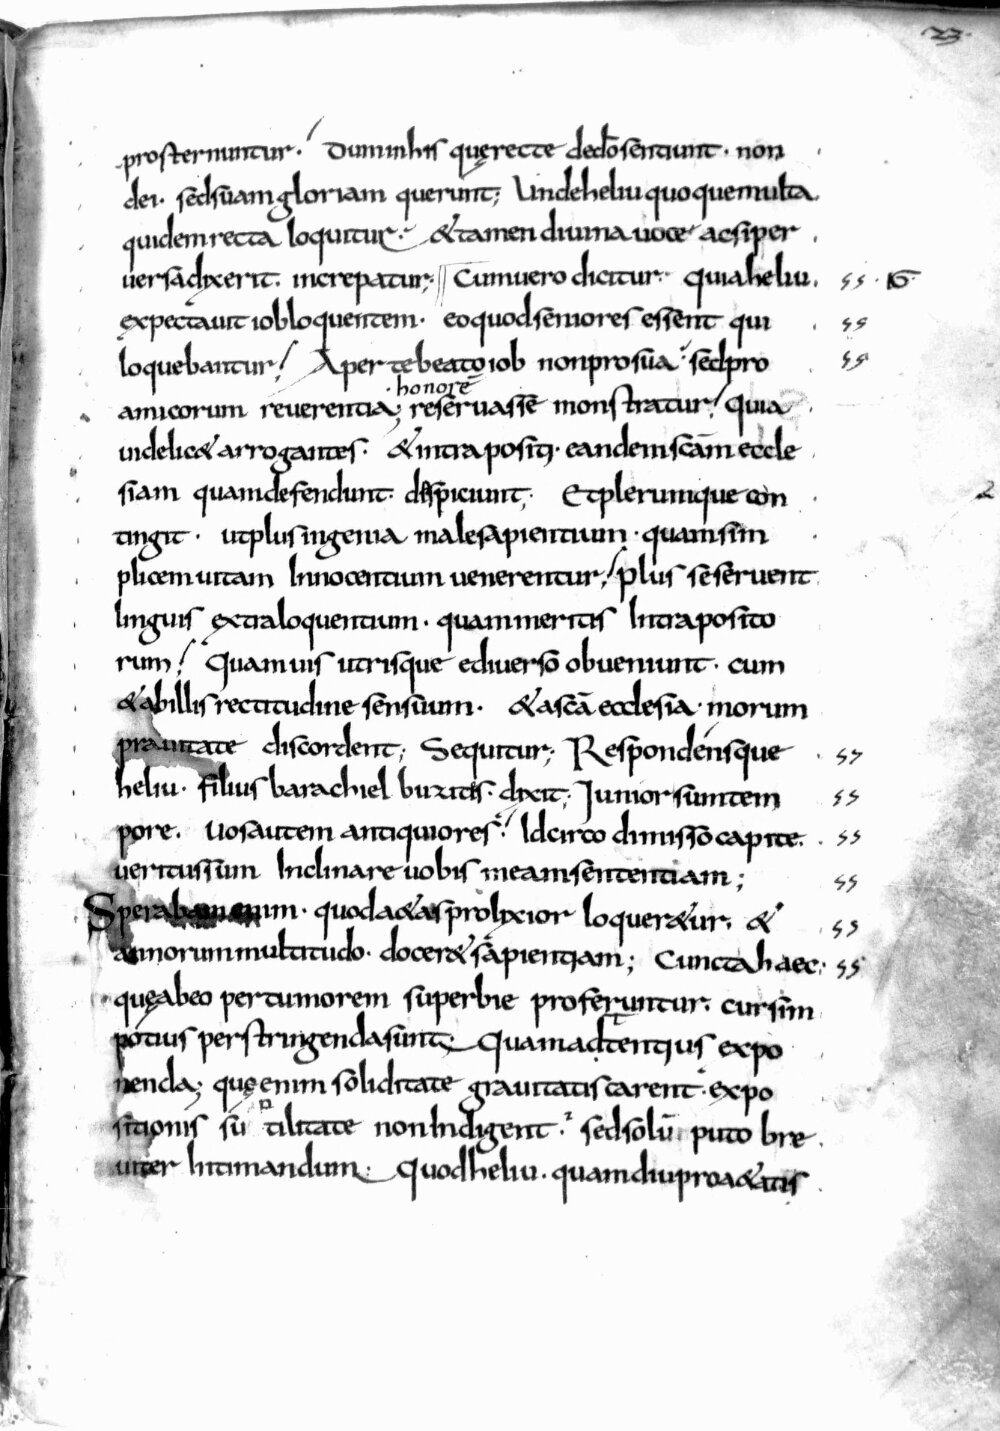 23.
prosternuntur. Dum in his quę recte de dō sentiunt. non
dei. sed suam gloriam querunt; Unde heliu quoque multa
quidem recta loquitur. & tamen diuina uoce ac si per
uersa dixerit. increpatur; Cum uero dicitur. Quia heliu. ss . 16
expectauit iob loquentem. eo quod seniores essent qui ss
loquebantur! Aperte beato iob non pro sua. sed pro ss
honorē
amicorum reuerentia; reseruasse monstratur! Quia
uidelic& arrogantes. & intra positi. eandem scām eccle
siam quam defendunt. despiciunt; Et plerumque con
tingit. ut plus ingenia male sapientium. quam sim
plicem uitam Innocentium uenerentur! plus se seruent
linguis extra loquentium. quam meritis Intra posito
rum! Quamuis utrisque e diuerso obueniunt. cum
& ab illis rectitudine sensuum. & a scā ecclesia morum
prauitate discordent; Sequitur; Respondensque ss
heliu. filius barachiel buzitis. dixit; Junior sum tem ss
pore. uos autem antiquiores! Idcirco dimisso capite. ss
ueritus sum Inclinare uobis meam sententiam; ss
Sperabam enim. quod a&as prolixior loquer&ur. & ss
annorum multitudo. docer& sapientiam; Cuncta haec; ss
quę ab eo per tumorem superbie proferuntur. cursim
potius perstringenda sunt; Quam adtentius expo
nenda; quę enim soliditate grauitatis carent. expo
sitionis su tilitate non Indigent. sed solū puto bre
uiter Intimandum. Quod heliu. quamdiu pro a&atis